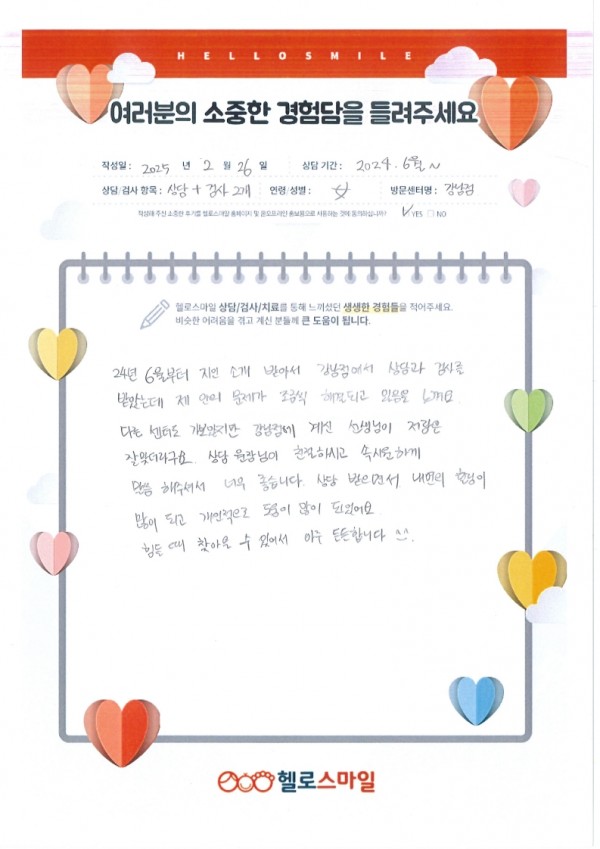 HELLOSMILE
여러분의 소중한 경험담을 들려주세요
작성일 : 2025 년 2 월 26 일 상담 기간 : 2024. 6월 ~
상담/검사 항목 : 상담 + 검사 2개 연령/성별 : 방문센터명 : 강남점
작성해 주신 소중한 후기를 헬로스마일 홈페이지 및 온오프라인 홍보용으로 사용하는 것에 동의하십니까? ✓ YES □ NO
헬로스마일 상담/검사/치료를 통해 느끼셨던 생생한 경험들을 적어주세요.
비슷한 어려움을 겪고 계신 분들께 큰 도움이 됩니다.
24년 6월부터 지인 소개 받아서 강남점에서 상담과 검사를
받았는데 제 안의 문제가 조금씩 해결되고 있음을 느껴요.
다른 센터도 가보았지만 강남점에 계신 선생님이 저랑은
잘맞더라구요. 상담 원장님이 친절하시고 속시원하게
말씀 해주셔서 너무 좋습니다. 상담 받으면서 내면의 힐링이
많이 되고 개인적으로 도움이 많이 되었어요
힘든 때 찾아올 수 있어서 아주 든든합니다 ^^.
헬로스마일